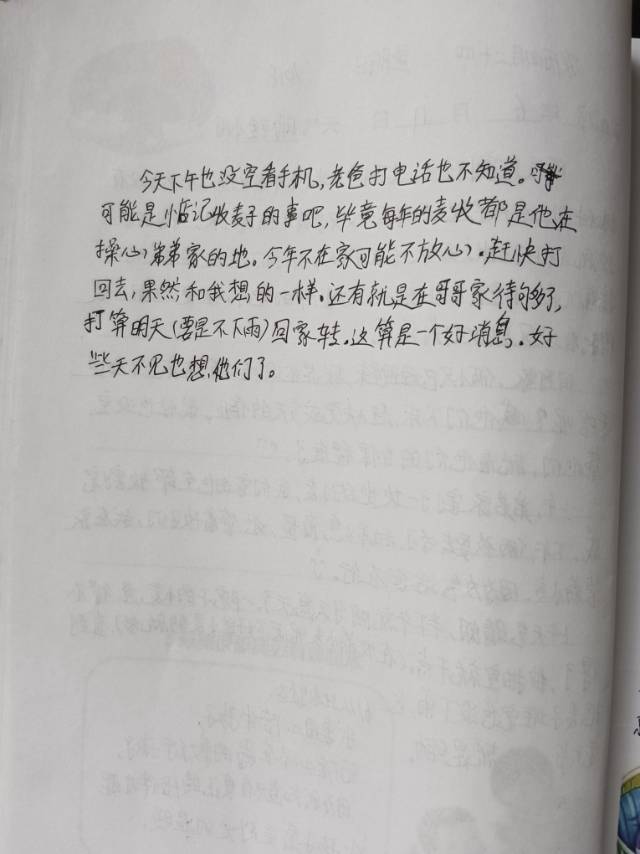 今天下午也没空看手机,老爸打电话也不知道。
可能是惦记收麦子的事吧,毕竟每年的麦收都是他在
操心弟弟家的地。今年不在家可能不放心。赶快打
回去,果然和我想的一样。还有就是在哥哥家待够了,
打算明天(要是不下雨)回家转。这算是一个好消息。好
些天不见也想他们了。